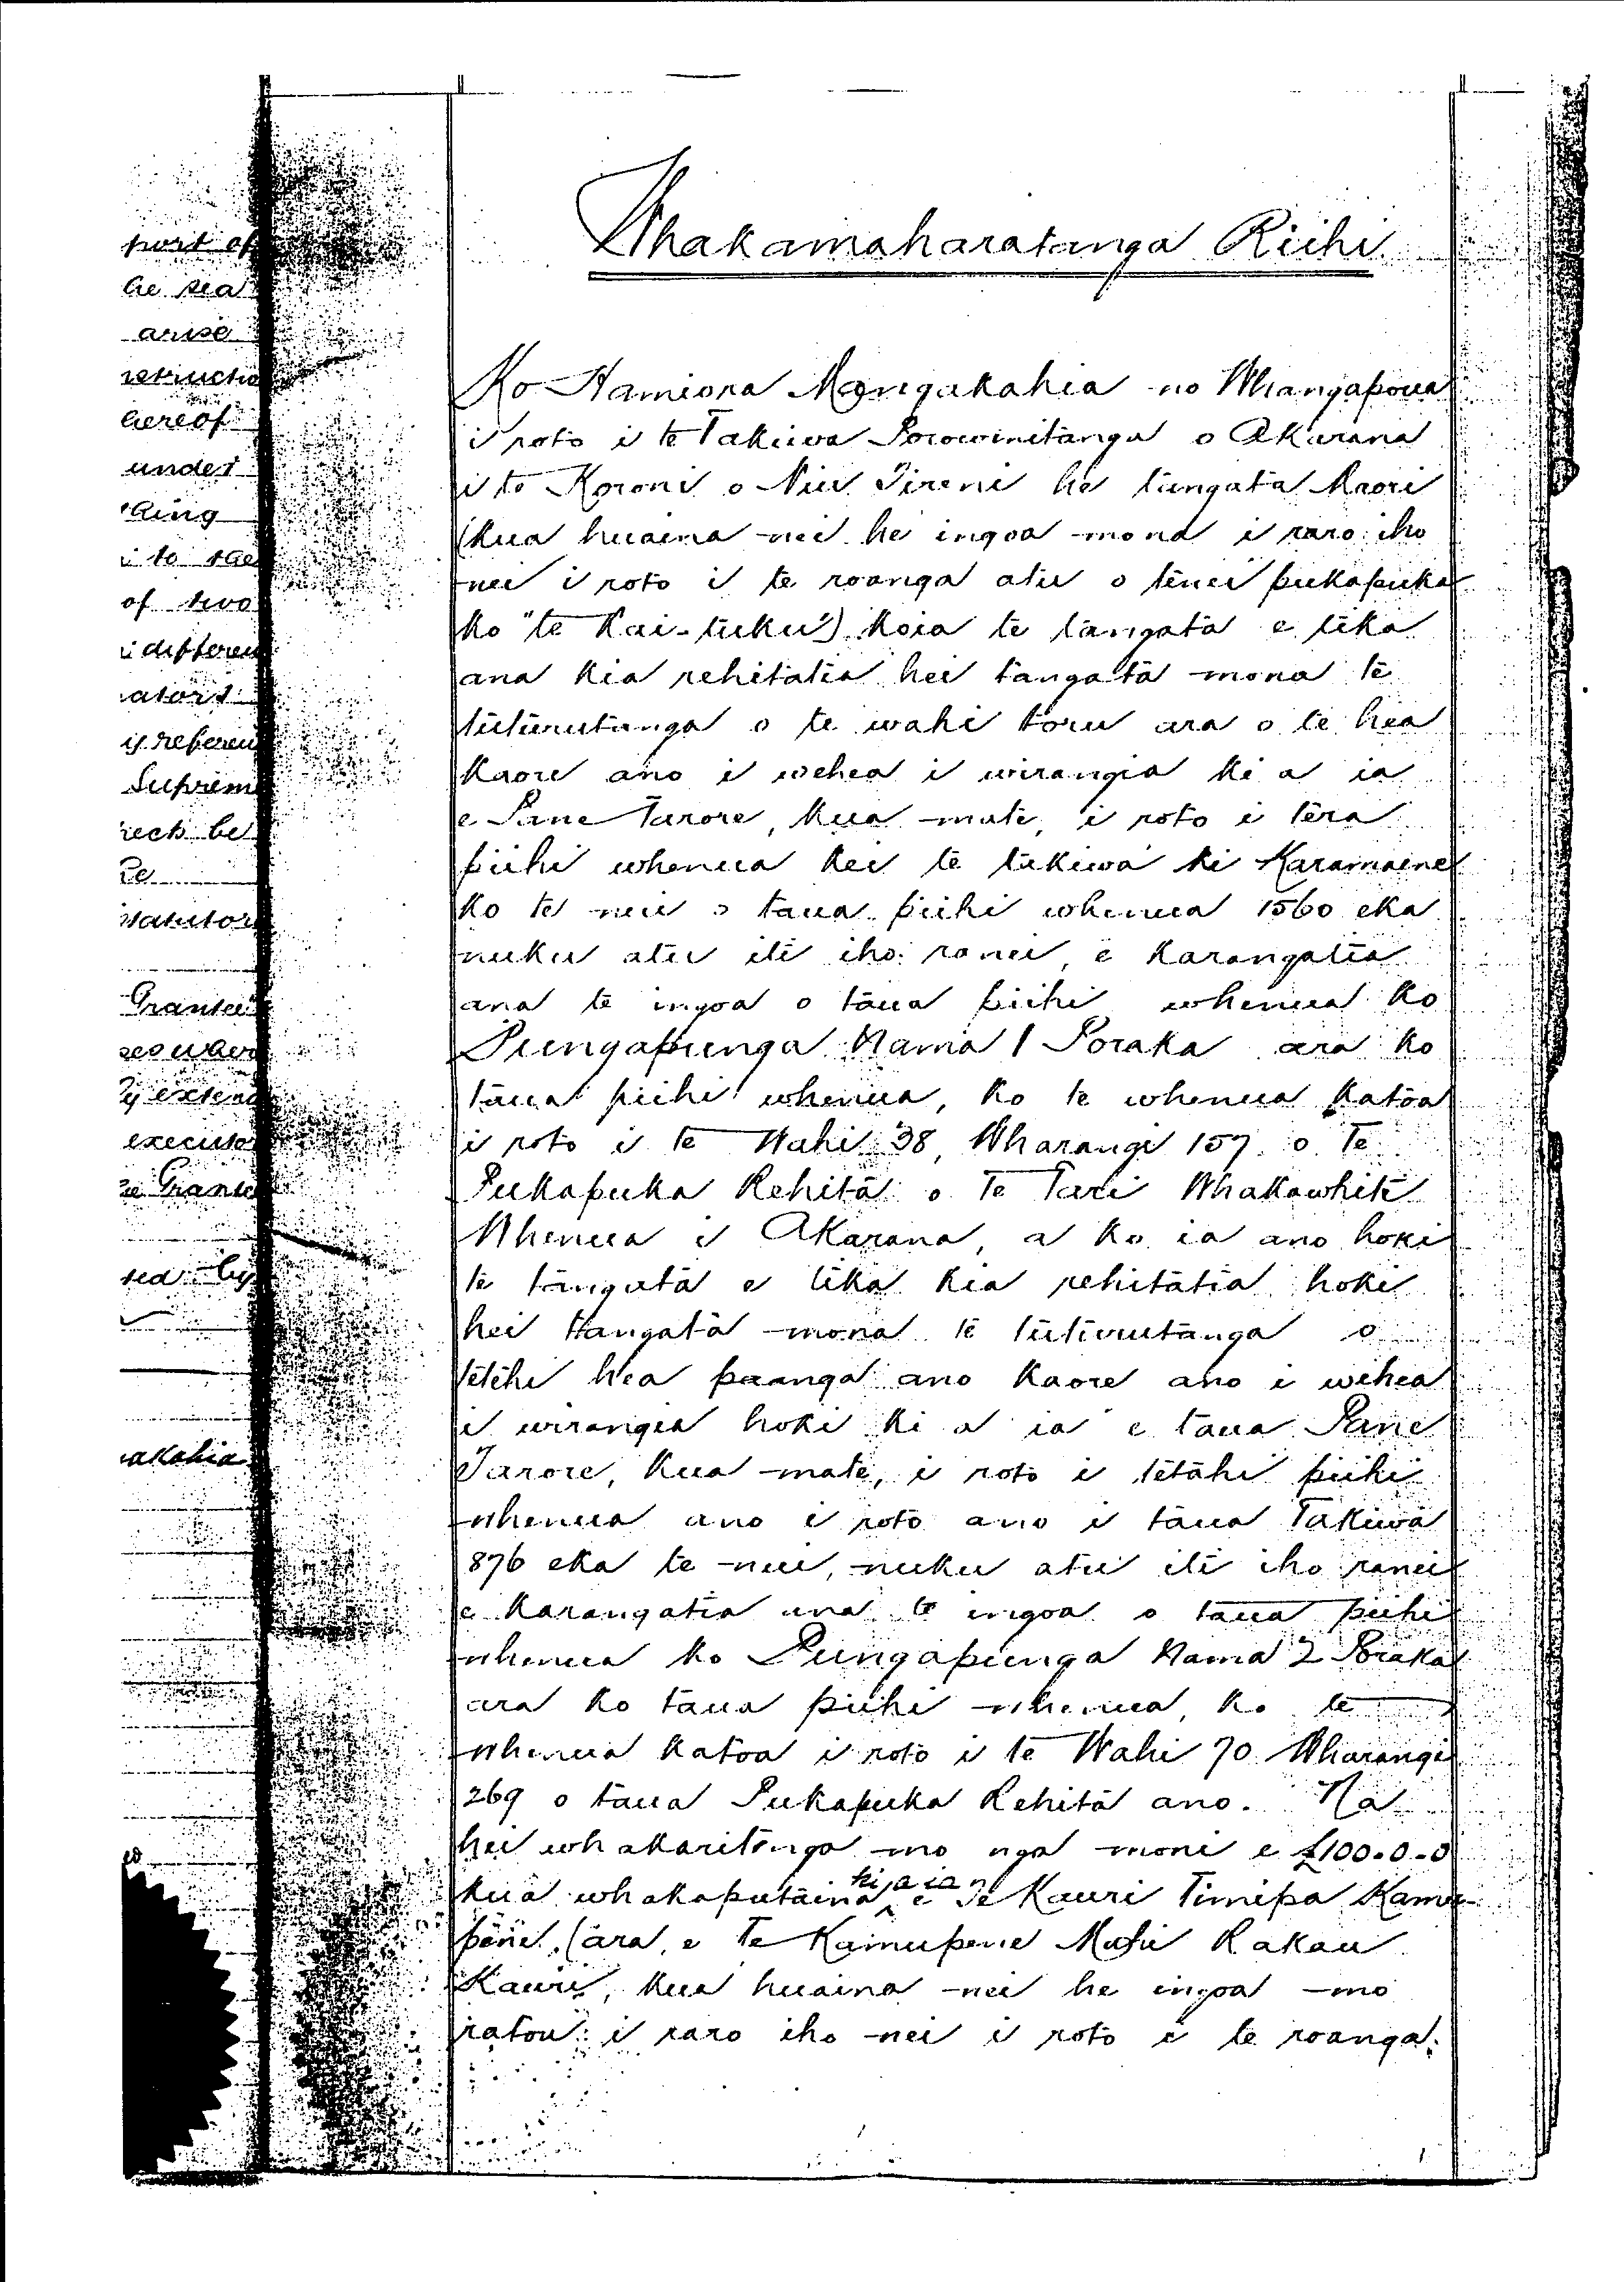 port of
he sea
arise
hereof
under
i to the
of two
Supreme
Grantee
execute
Grantee
sed by
akahia
Whakamaharatanga Riihi
Ko Hamiora Mangakahia no Whangapoua
i roto i te Takiwa Porowinitanga o Akarana
i te Koroni o Niu Tireni he tangata Maori
(kua huaina nei he ingoa mona i raro iho
nei i roto i te roanga atu o tenei pukapuka
ko "te Kai-tuku") koia te tangata e tika
ana kia rehitatia hei tangata mona te
tuturutanga o te wahi toru ara o te hea
kaore ano i wehea i wirangia ki a ia
e Pane Tarore, kua mate, i roto i tera
piihi whenua kei te takiwa ki Karamaine
ko te nui o taua piihi whenua 1560 eka
nuku atu iti iho ranei, e karangatia
ana te ingoa o taua piihi whenua ko
Pungapunga Nama 1 Poraka ara ko
taua piihi whenua, ko te whenua katoa
i roto i te Wahi 38, Wharangi 157 o Te
Pukapuka Rehita o Te Tari Whakawhiti
Whenua i Akarana, a ko ia ano hoki
te tangata e tika kia rehitatia hoki
hei tangata mona te tuturutanga o
tetehi hea paanga ano kaore ano i wehea
i wirangia hoki ki a ia e taua Pane
Tarore, kua mate, i roto i tetahi piihi
whenua ano i roto ano i taua Takiwa
876 eka te nui, nuku atu iti iho ranei
e karangatia ana te ingoa o taua piihi
whenua ko Pungapunga Nama 2 Poraka
ara ko taua piihi whenua, ko te
whenua katoa i roto i te Wahi 70 Wharangi
269 o taua Pukapuka Rehita ano. Na
hei whakaritenga mo nga moni e £100-0-0
kua whakaputaina ki a ia e Te Kauri Timipa Kamu-
pene, (ara, e Te Kamupene Mahi Rakau
Kauri, kua huaina nei he ingoa mo
ratou i raro iho nei i roto i te roanga